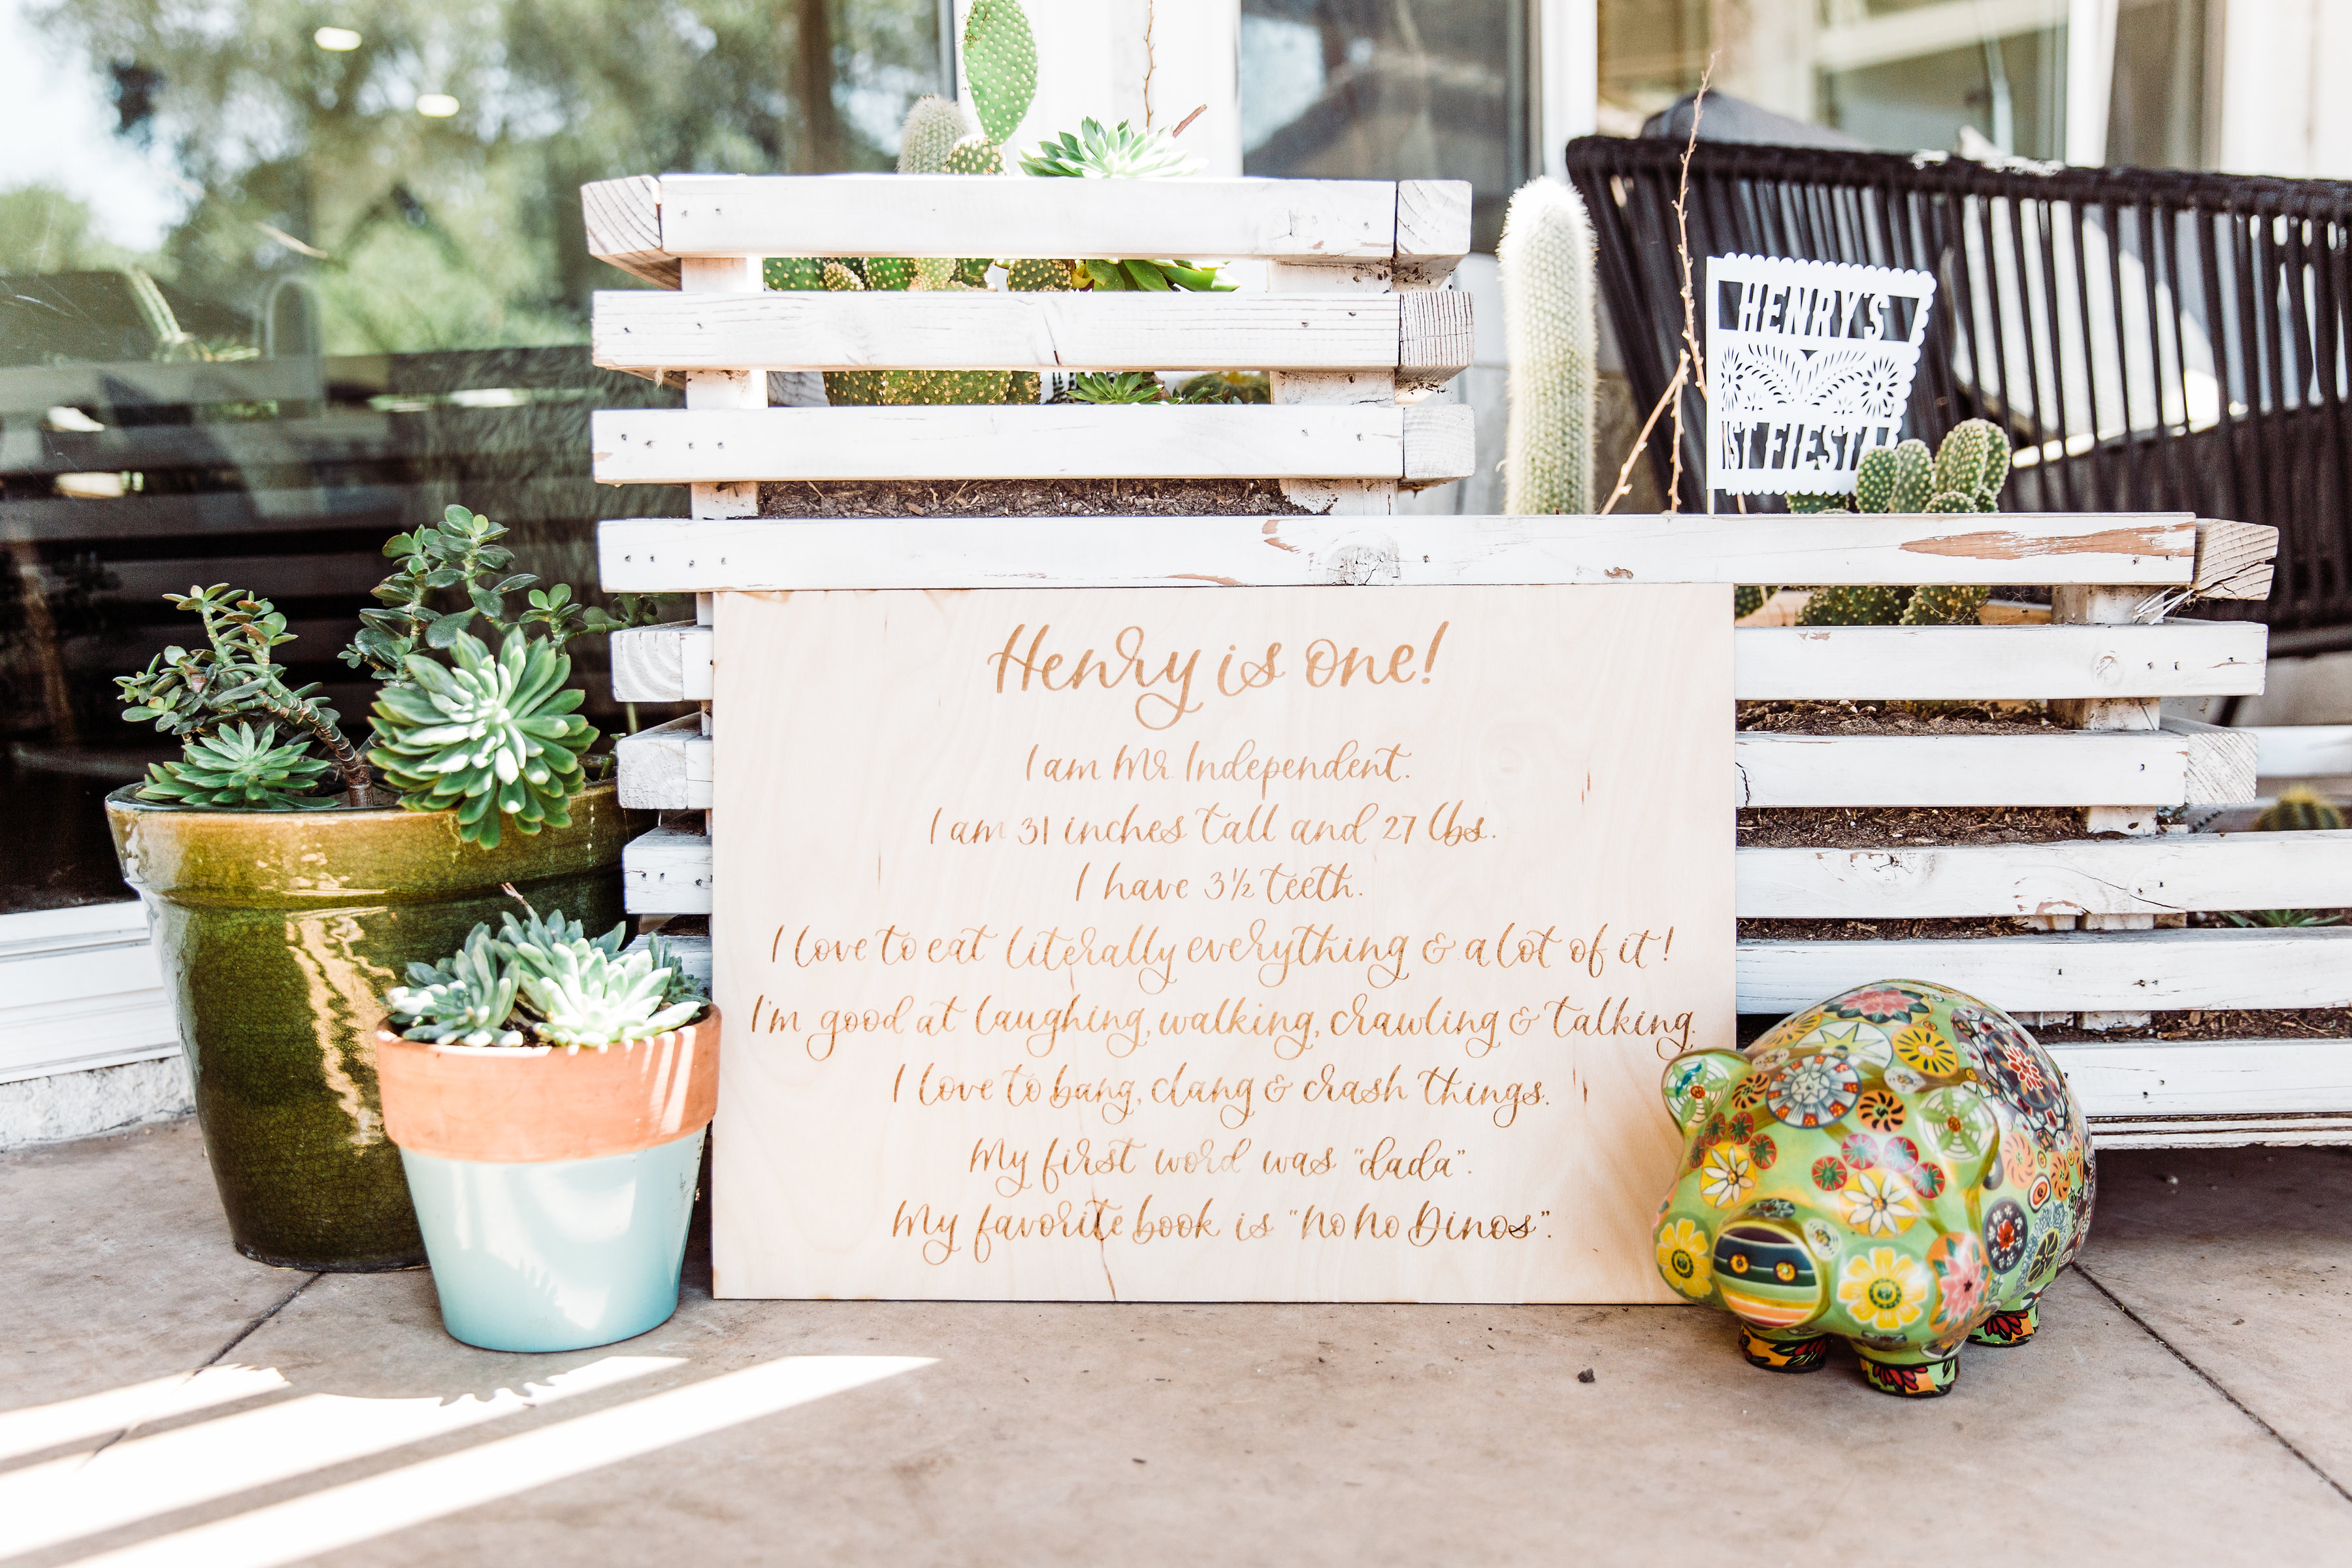 HENRY'S
1ST FIESTA
Henry is one!
I am Mr. Independent.
I am 31 inches tall and 27 lbs.
I have 3½ teeth.
I love to eat literally everything & a lot of it!
I'm good at laughing, walking, crawling & talking.
I love to bang, clang & crash things.
My first word was "dada".
My favorite book is "No No Dinos".